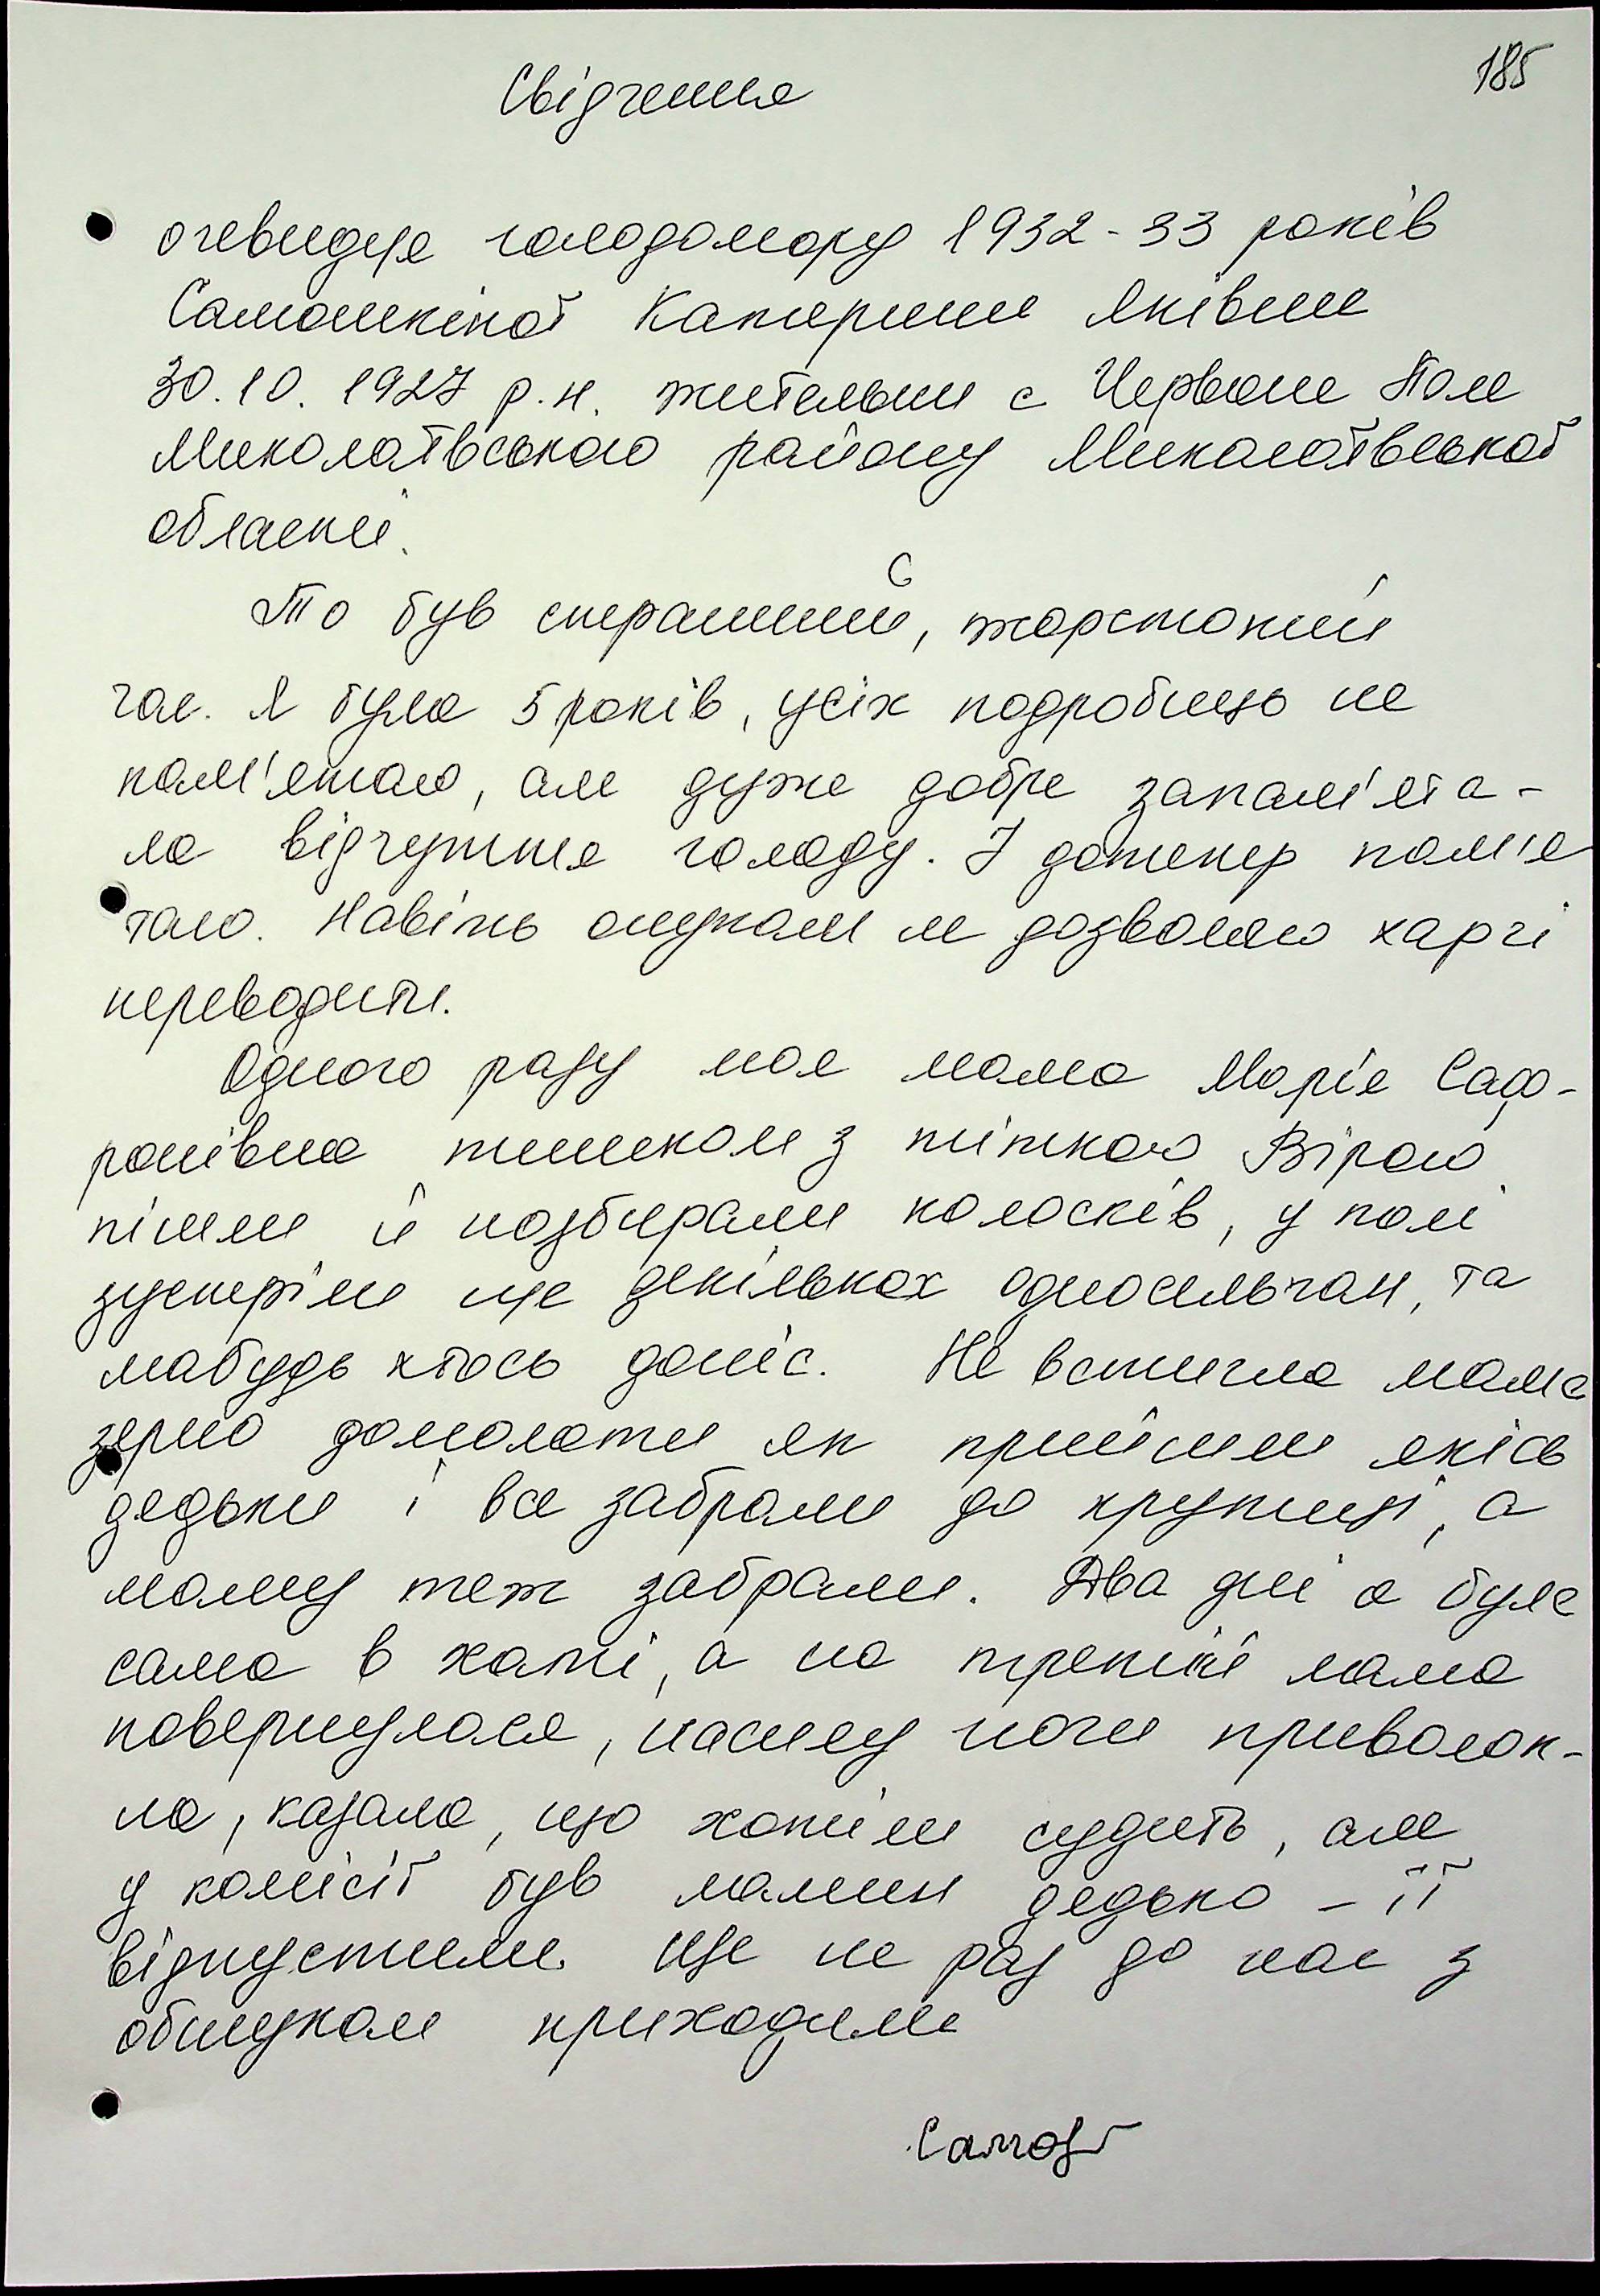 185
Свідчення
очевидця голодомору 1932-33 років
Самошкіної Катерини Яківни
30.10.1927 р.н. жительки с Червоне Поле
Миколаївського району Миколаївської
області.
То був страшний, жорстокий
час. Я була 5 років, усіх подробиць не
пам'ятаю, але дуже добре запам'ята-
ла відчуття голоду. І дотепер пам'я
таю. Навіть онукам не дозволяю харчі
переводити.
Одного разу моя мама Марія Саф-
ронівна тишком з тіткою Вірою
пішли й назбирали колосків, у полі
зустріли ще декількох односельчан, та
мабудь хтось доніс. Не встигла мама
зерно домолоти як прийшли якісь
дядьки і все забрали до крупиці, а
маму теж забрали. Два дні я була
сама в хаті, а на третій мама
повернулася, насилу ноги приволок-
ла, казала, що хотіли судить, але
у комісії був мамин дядько - її
відпустили. Ще не раз до нас з
обшуком приходили